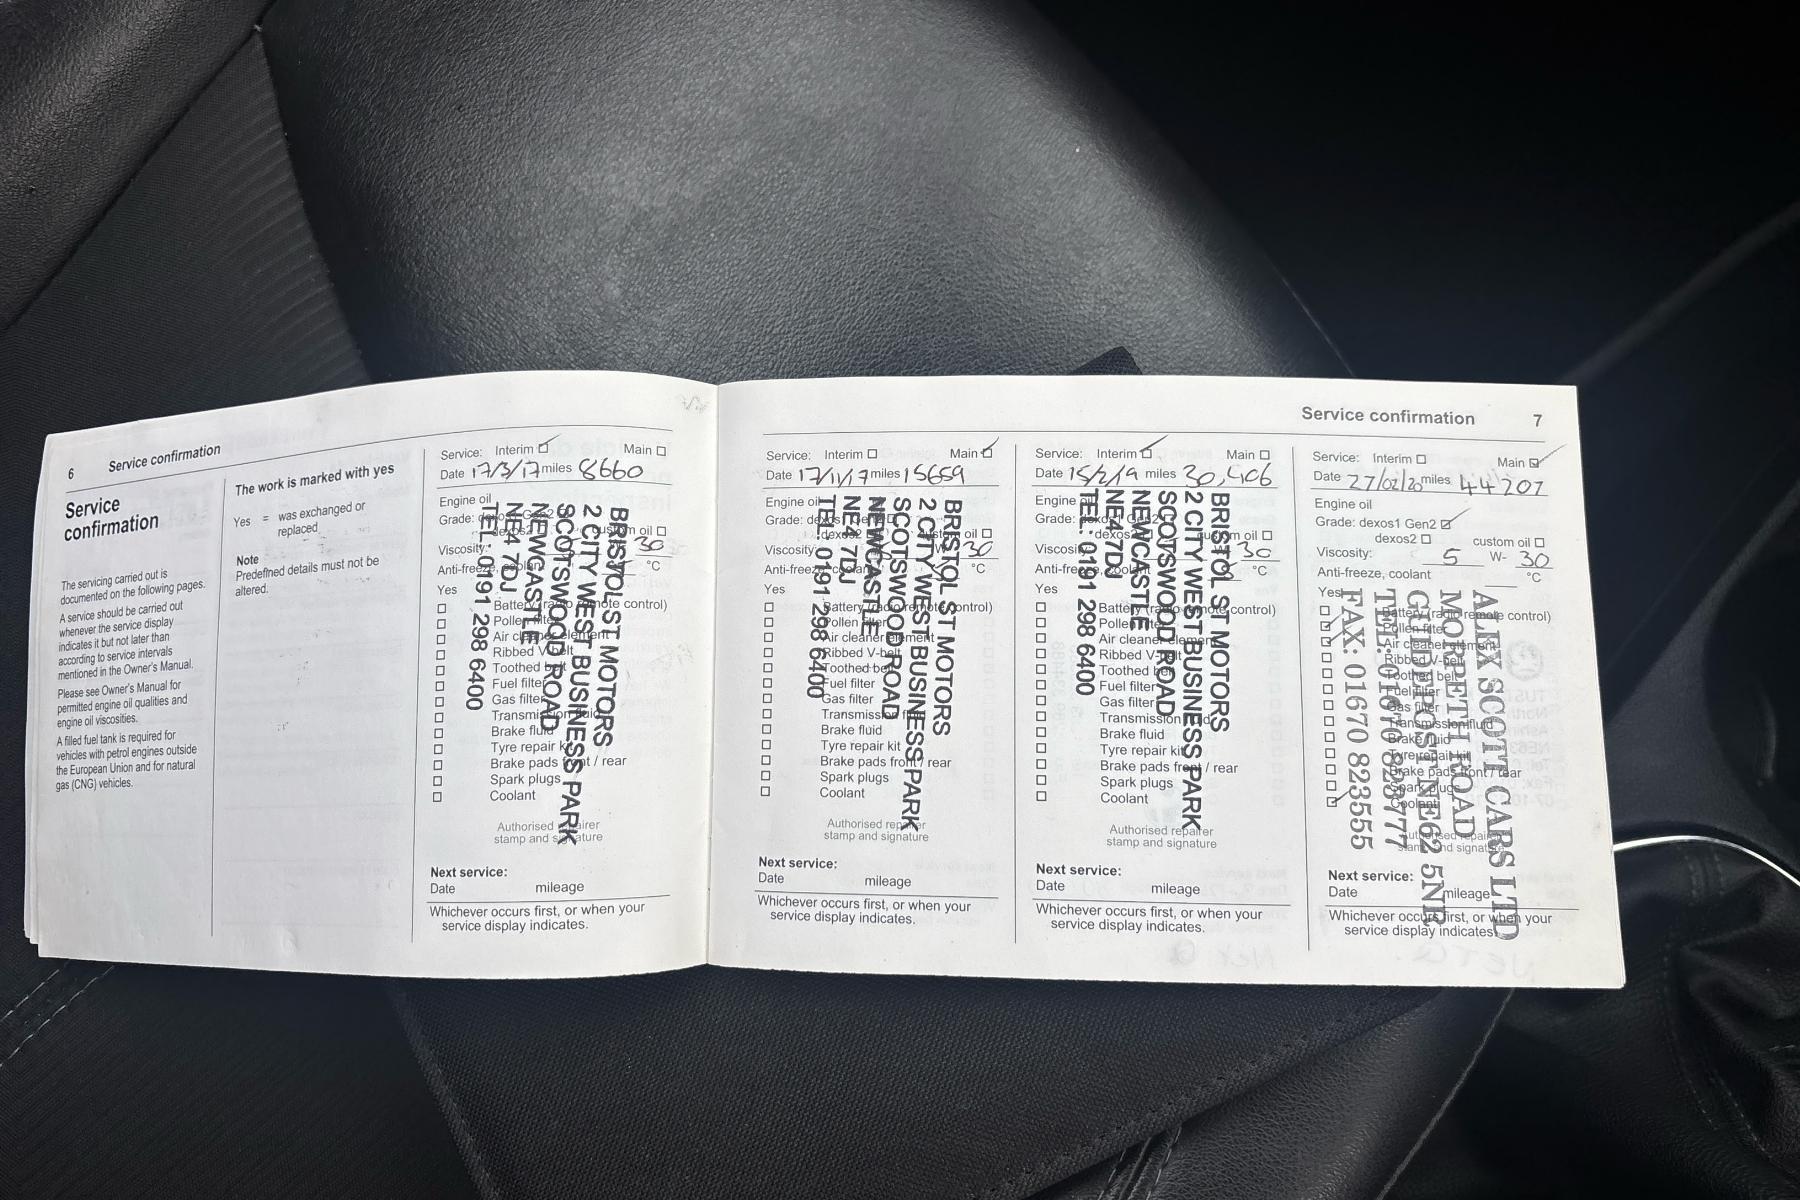 6 Service confirmation
Service
confirmation
The servicing carried out is
documented on the following pages.
A service should be carried out
whenever the service display
indicates it but not later than
according to service intervals
mentioned in the Owner's Manual.
Please see Owner's Manual for
permitted engine oil qualities and
engine oil viscosities.
A filled fuel tank is required for
vehicles with petrol engines outside
the European Union and for natural
gas (CNG) vehicles.
The work is marked with yes
Yes = was exchanged or
replaced
Note
Predefined details must not be
altered.
Service: Interim Main
Date 17/3/17 miles 8660
Engine oil
Grade: dexos1 Gen2
dexos2 custom oil
Viscosity: 30
Anti-freeze, coolant °C
Yes
Battery (radio remote control)
Pollen filter
Air cleaner element
Ribbed V-belt
Toothed belt
Fuel filter
Gas filter
Transmission fluid
Brake fluid
Tyre repair kit
Brake pads front / rear
Spark plugs
Coolant
Authorised repairer
stamp and signature
BRISTOL ST MOTORS
2 CITY WEST BUSINESS PARK
SCOTSWOOD ROAD
NEWCASTLE
NE4 7DJ
TEL: 0191 298 6400
Next service:
Date mileage
Whichever occurs first, or when your
service display indicates.
Service confirmation 7
Service: Interim Main
Date 17/11/17 miles 15659
Engine oil
Grade: dexos1 Gen2
dexos2 custom oil
Viscosity: W- 30
Anti-freeze, coolant °C
Yes
Battery (radio remote control)
Pollen filter
Air cleaner element
Ribbed V-belt
Toothed belt
Fuel filter
Gas filter
Transmission fluid
Brake fluid
Tyre repair kit
Brake pads front / rear
Spark plugs
Coolant
Authorised repairer
stamp and signature
BRISTOL ST MOTORS
2 CITY WEST BUSINESS PARK
SCOTSWOOD ROAD
NEWCASTLE
NE4 7DJ
TEL: 0191 298 6400
Next service:
Date mileage
Whichever occurs first, or when your
service display indicates.
Service: Interim Main
Date 15/2/19 miles 30,406
Engine oil
Grade: dexos1 Gen2
dexos2 custom oil
Viscosity: W- 30
Anti-freeze, coolant °C
Yes
Battery (radio remote control)
Pollen filter
Air cleaner element
Ribbed V-belt
Toothed belt
Fuel filter
Gas filter
Transmission fluid
Brake fluid
Tyre repair kit
Brake pads front / rear
Spark plugs
Coolant
Authorised repairer
stamp and signature
BRISTOL ST MOTORS
2 CITY WEST BUSINESS PARK
SCOTSWOOD ROAD
NEWCASTLE
NE4 7DJ
TEL: 0191 298 6400
Next service:
Date mileage
Whichever occurs first, or when your
service display indicates.
Service: Interim Main
Date 27/02/20 miles 44207
Engine oil
Grade: dexos1 Gen2
dexos2 custom oil
Viscosity: 5 W- 30
Anti-freeze, coolant °C
Yes
Battery (radio remote control)
Pollen filter
Air cleaner element
Ribbed V-belt
Toothed belt
Fuel filter
Gas filter
Transmission fluid
Brake fluid
Tyre repair kit
Brake pads front / rear
Spark plugs
Coolant
Authorised repairer
stamp and signature
ALEX SCOTT CARS LTD
MORPETH ROAD
GUIDEPOST NE62 5NR
TEL: 01670 823777
FAX: 01670 823555
Next service:
Date mileage
Whichever occurs first, or when your
service display indicates.